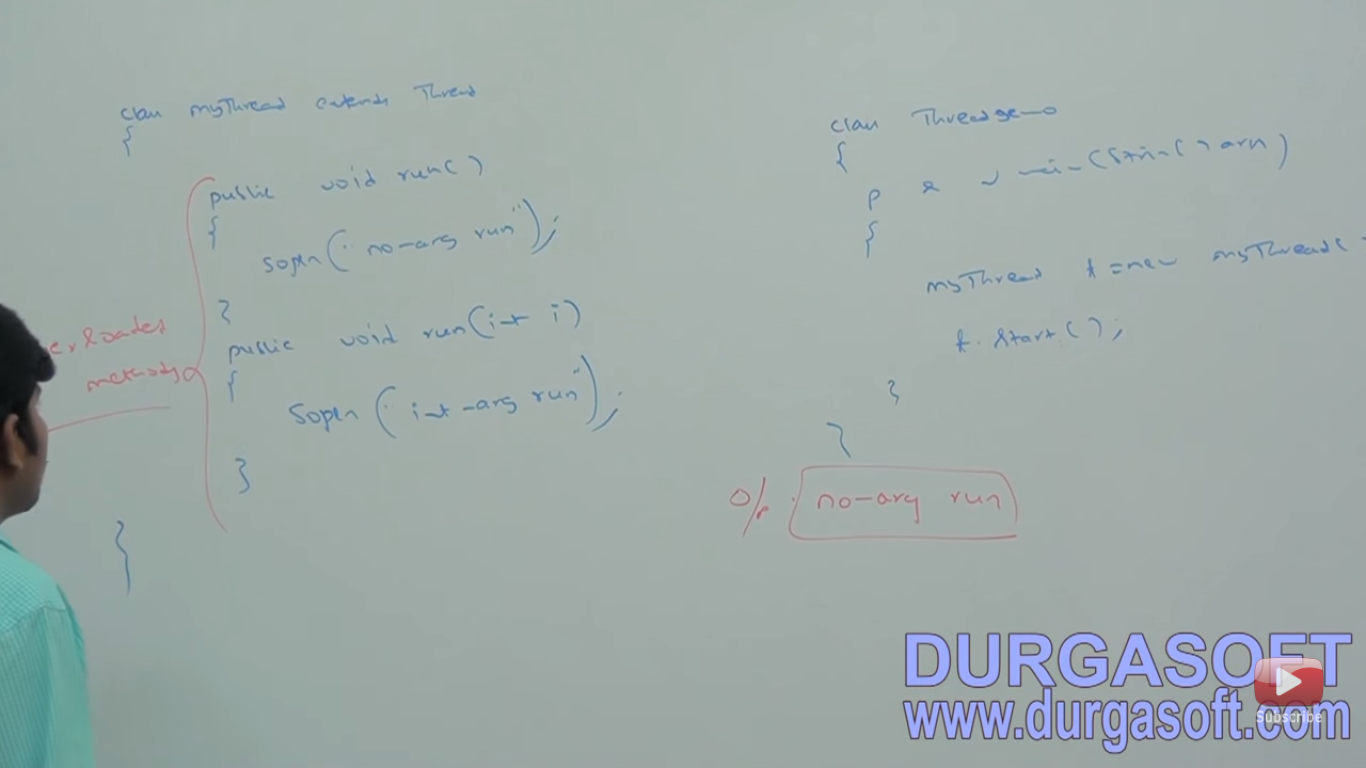 class myThread extends Thread
{
public void run()
{
sopln(" no-arg run");
}
public void run(int i)
{
Sopln(" int-arg run");
}
}
methods
class ThreadDemo
{
p s v main(String[] args)
{
myThread t = new myThread(
t.start();
}
}
o/p: no-arg run
DURGASOFT
www.durgasoft.com
Subscribe